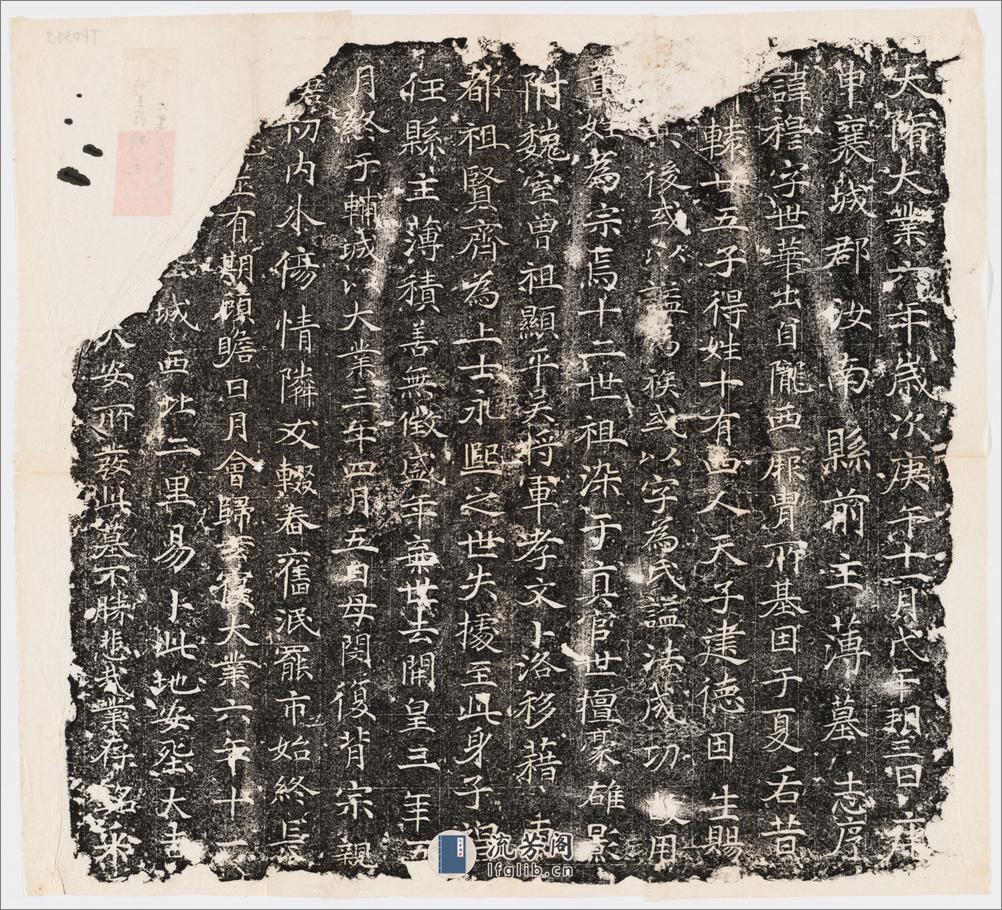 大隋大業六年歲次庚午十一月戊午朔三日庚
申襄城郡汝南縣前主薄墓志序
諱穆字世華出自隴西厥胄所基因于夏后昔
軒轅廿五子得姓十有四人天子建德因生賜
後或以謚為族或以字為氏謚法成功用
為宗焉十二世祖染于真官世擅豪雄
附魏室曾祖顯平吳將軍孝文卜洛移藉
都祖賢齊為上士永熙之世失據至此身子
任縣主薄積善無徵盛年棄世去開皇三年
月終于輔城以大業三年四月五日母閔復背宗親
內外傷情隣友輟春舊泯罷市始終
有期傾瞻日月會歸窀穸大業六年十一
城西北二里易卜此地安厝大
安所發此墓不勝悲哉業存銘
流芳阁
lfglib.cn